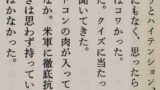 ンとハイテンション、
にもなく、思ったら
はコワかった。
た。クイズに当たっ
聞いてきた。
トコンの肉が入って
なか。米軍に徹底抗
きは思わず持ってい
はなかった。